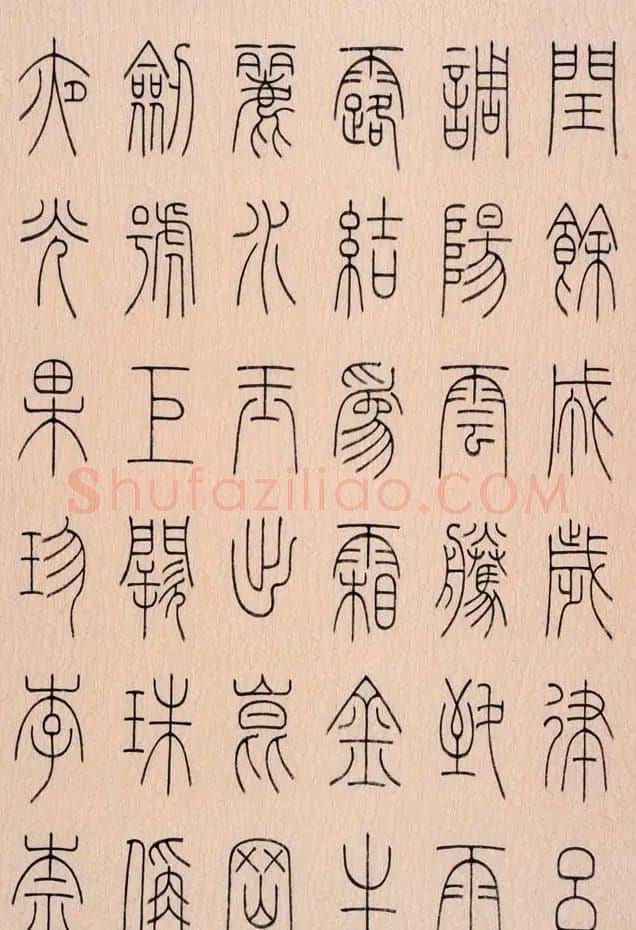 閏餘成歲律呂
調陽雲騰致雨
露結爲霜金生
麗水玉出崑岡
劍號巨闕珠稱
夜光果珍李柰
Shufaziliao.COM